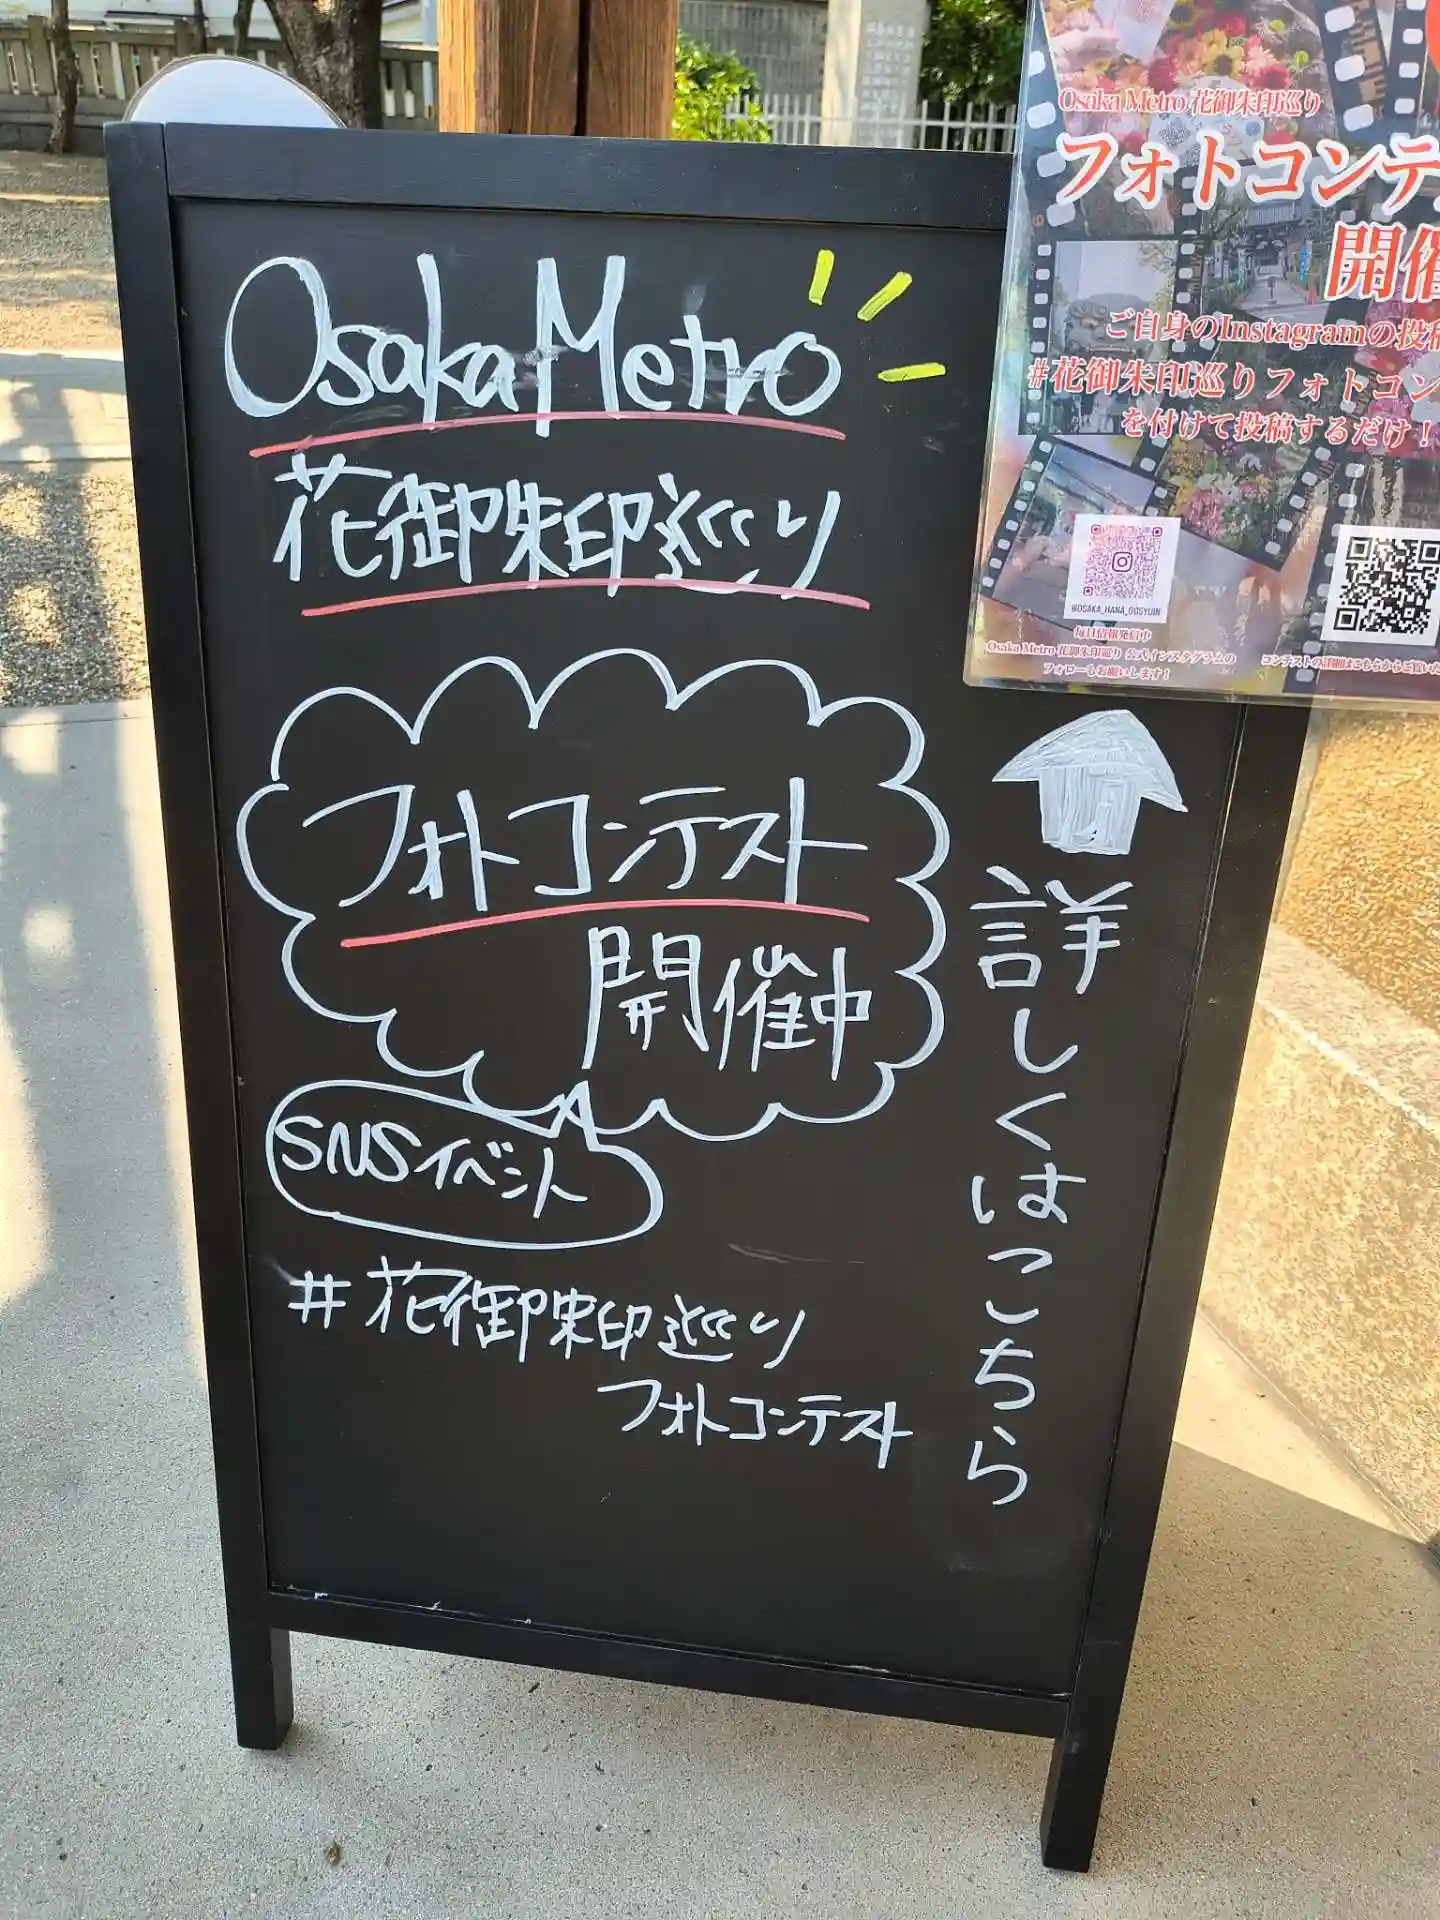 Osaka Metro
花御朱印巡り
フォトコンテスト
開催中
SNSイベント
#花御朱印巡り
フォトコンテスト
詳しくはこちら
Osaka Metro 花御朱印巡り
フォトコンテ
開催
ご自身のInstagramの投稿
#花御朱印巡りフォトコン
を付けて投稿するだけ!
@OSAKA_HANA_GOSYUIN
毎日情報発信中
Osaka Metro 花御朱印巡り 公式インスタグラムの
フォローもお願いします!
コンテストの詳細はこちらからご覧いた